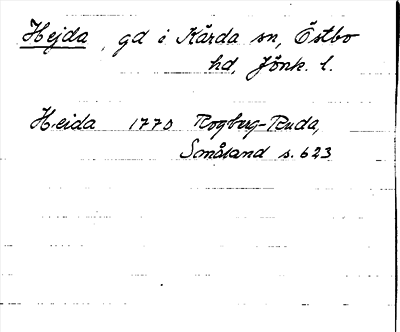 Hejda, gd i Kärda sn, Östbo
hd, Jönk. l.
Heida 1770 Rogberg-Ruda,
Småland s. 623